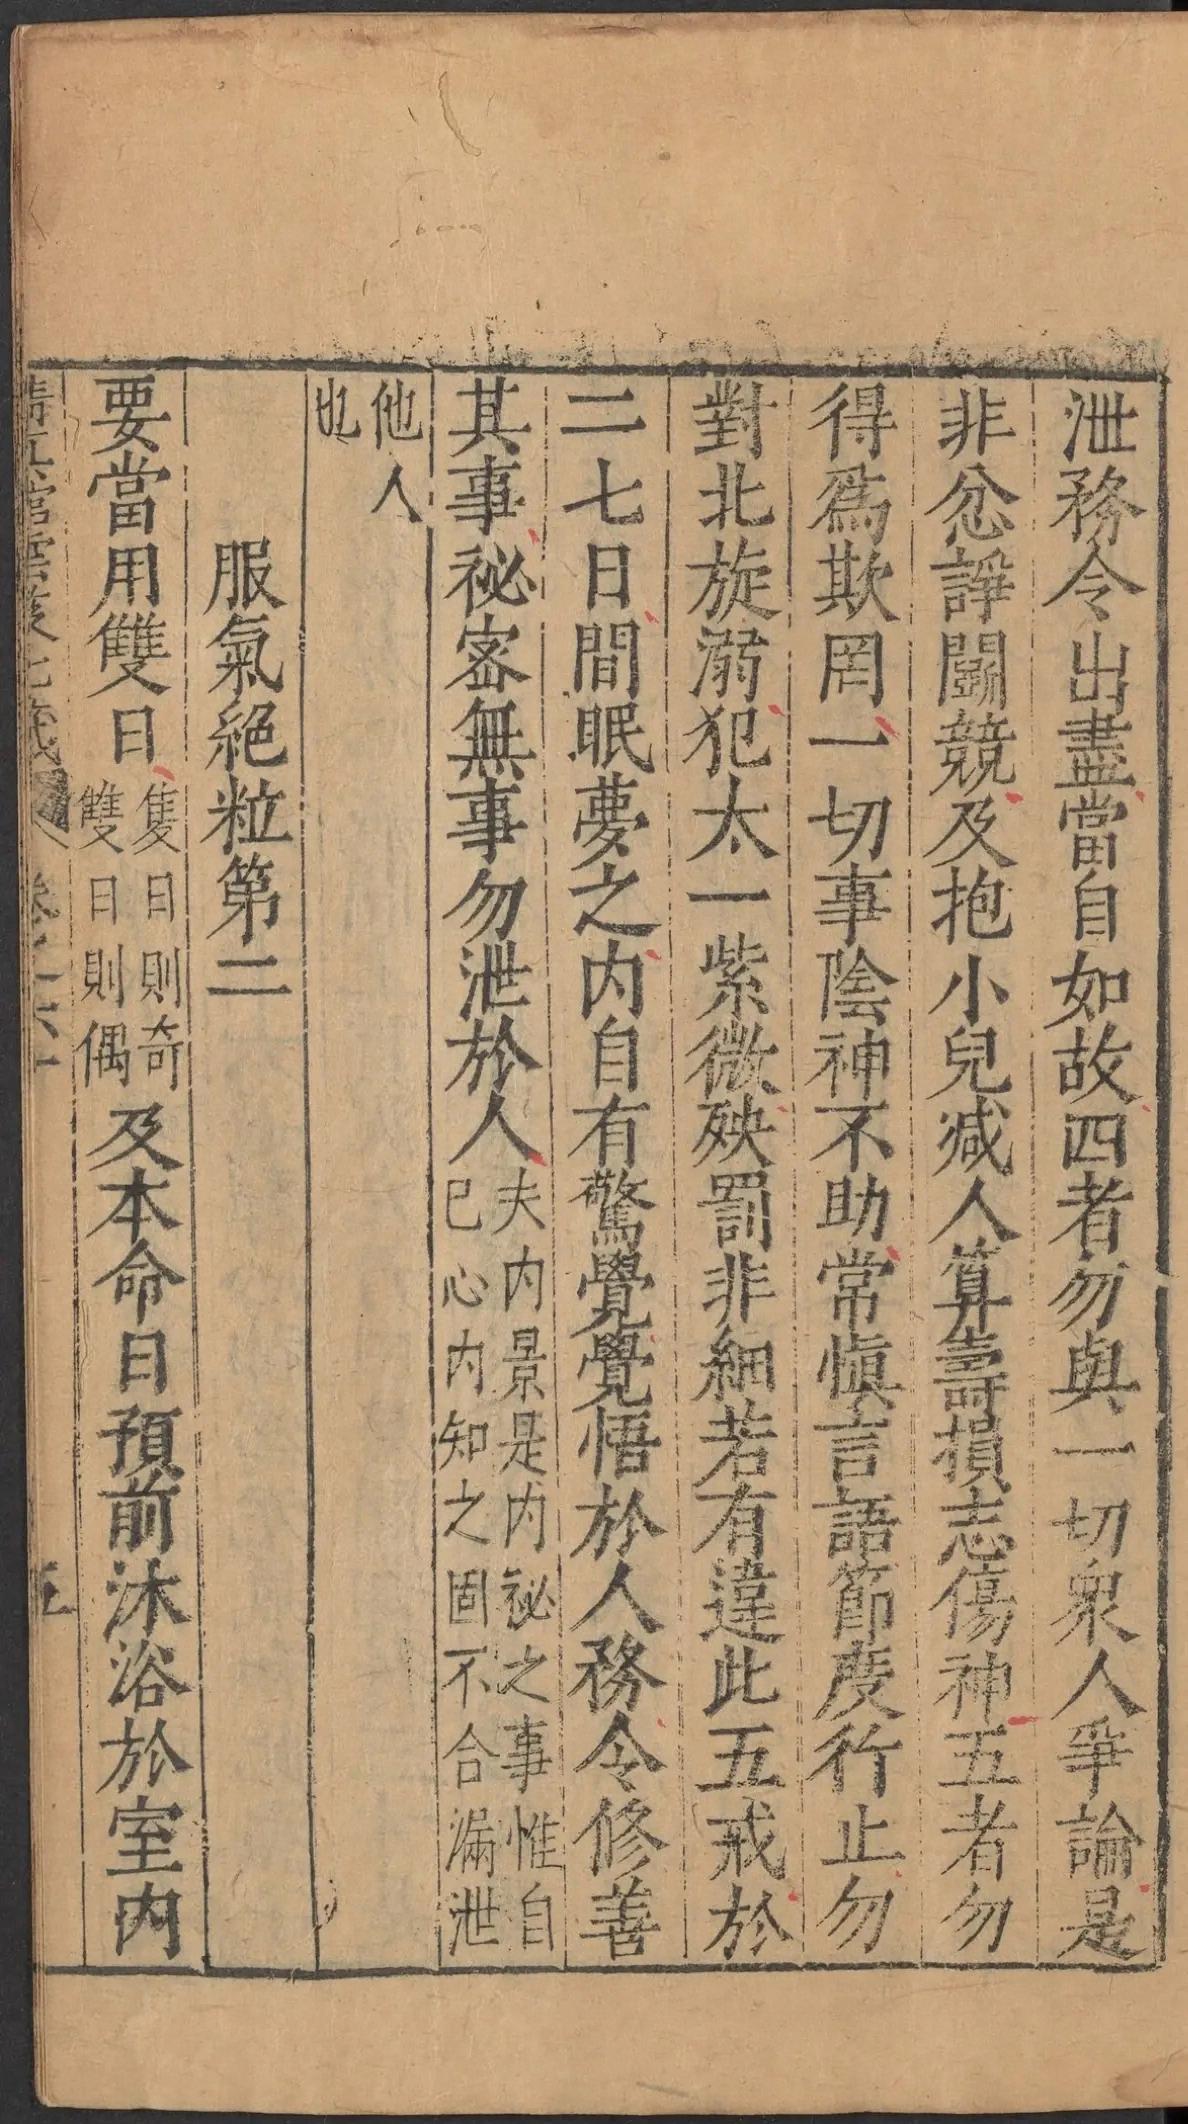 泄務令出盡當自如故四者勿與一切衆人爭論是
非忿諍鬭競及抱小兒減人算壽損志傷神五者勿
得爲欺罔一切事陰神不助常愼言語節度行止勿
對北旋溺犯太一紫微殃罰非細若有違此五戒於
二七日間眠夢之内自有驚覺覺悟於人務令修善
其事祕密無事勿泄於人夫内景是内祕之事惟自
已心内知之固不合漏泄
他人
也
服氣絕粒第二
要當用雙日隻日則奇
雙日則偶
及本命日預前沐浴於室内